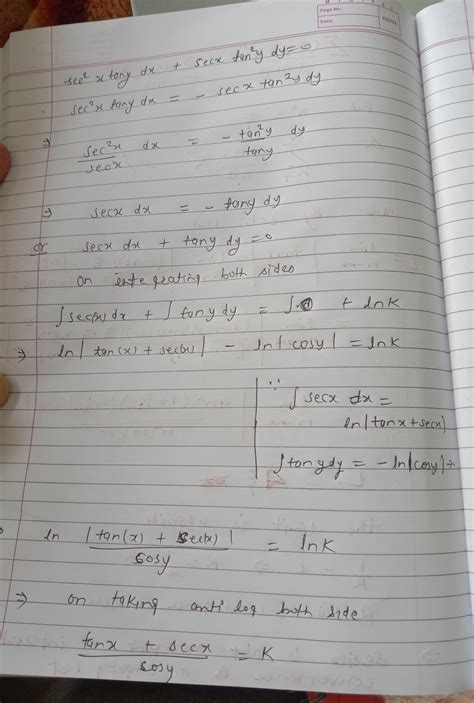 Page No.:
Date:
sec²x tany dx + secx tan²y dy=0
sec²x tany dx = - secx tan²y dy
⇒ sec²x/secx dx = - tan²y/tany dy
⇒ secx dx = - tany dy
or secx dx + tany dy =0
on integrating both sides
∫sec(x) dx + ∫tany dy = ∫0 + lnK
⇒ ln|tan(x) + sec(x)| - ln|cosy| = lnK
∵ ∫secx dx =
ln|tanx+secx|
∫tanydy = -ln|cosy|+
ln |tan(x) + sec(x)|/cosy = lnK
⇒ on taking anti log both side
tanx + secx/cosy = K